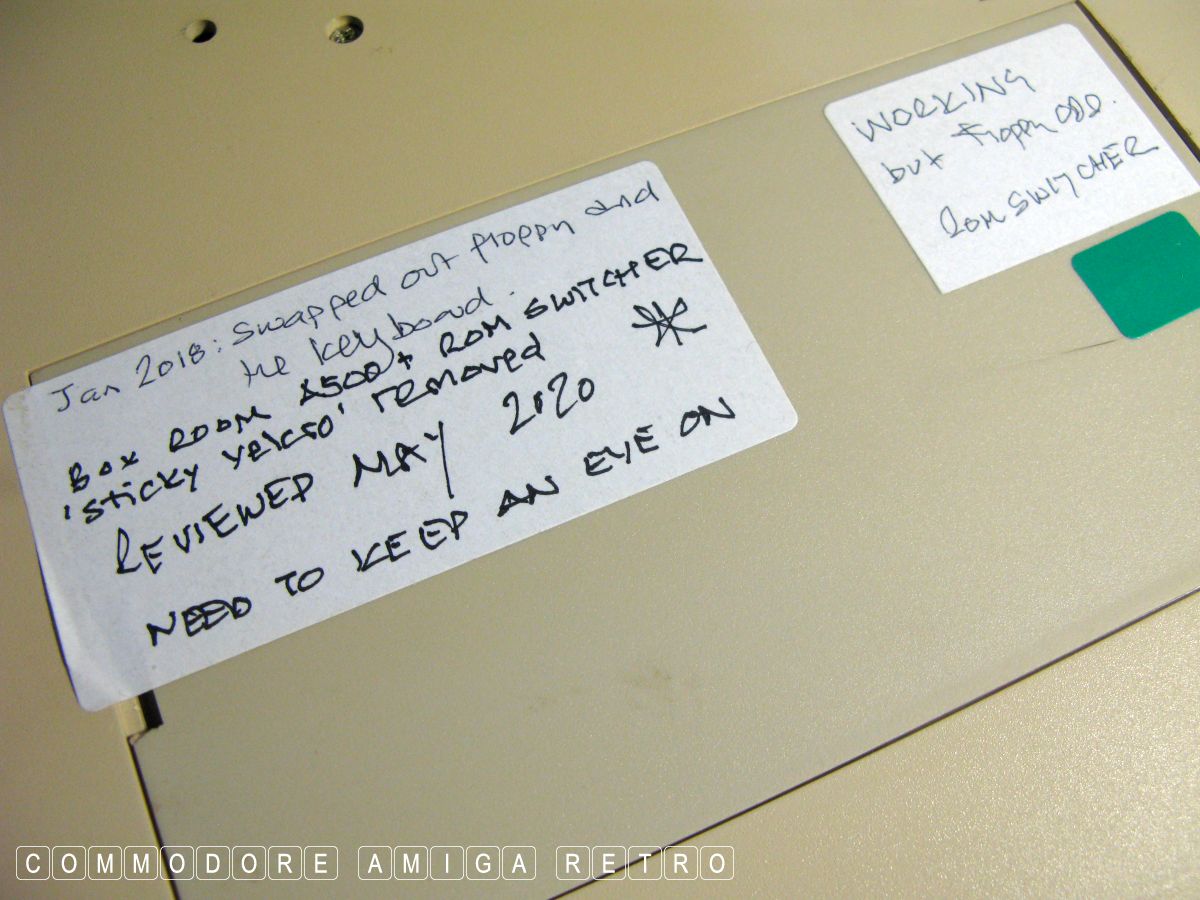 Jan 2018: Swapped out floppy and
the keyboard.
BOX ROOM A500 + ROM SWITCHER
'sticky velcro' removed
REVIEWED MAY 2020
NEED TO KEEP AN EYE ON
WORKING
but Floppy ODD.
ROM SWITCHER
COMMODORE AMIGA RETRO